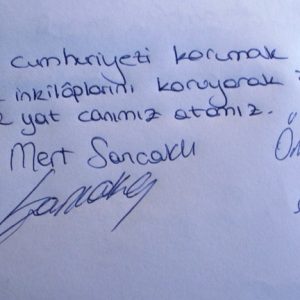 cumhuriyeti korumak
inkilâplarını koruyarak
yat canımız atamız.
Mert Sancaklı